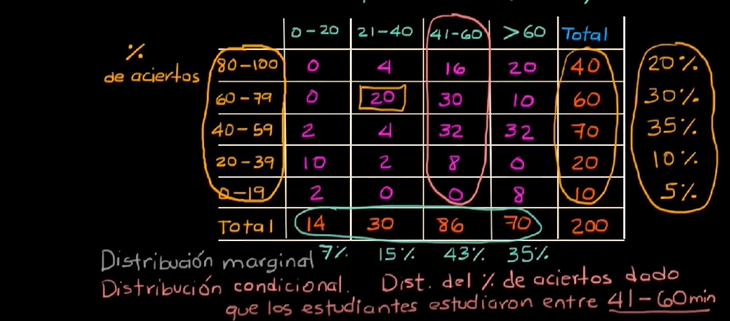 0-20 21-40 41-60 >60 Total
% de aciertos
80-100 0 4 16 20 40 20%
60-79 0 20 30 10 60 30%
40-59 2 4 32 32 70 35%
20-39 10 2 8 0 20 10%
0-19 2 0 0 8 10 5%
Total 14 30 86 70 200
Distribución marginal 7% 15% 43% 35%
Distribución condicional. Dist. del % de aciertos dado
que los estudiantes estudiaron entre 41-60min